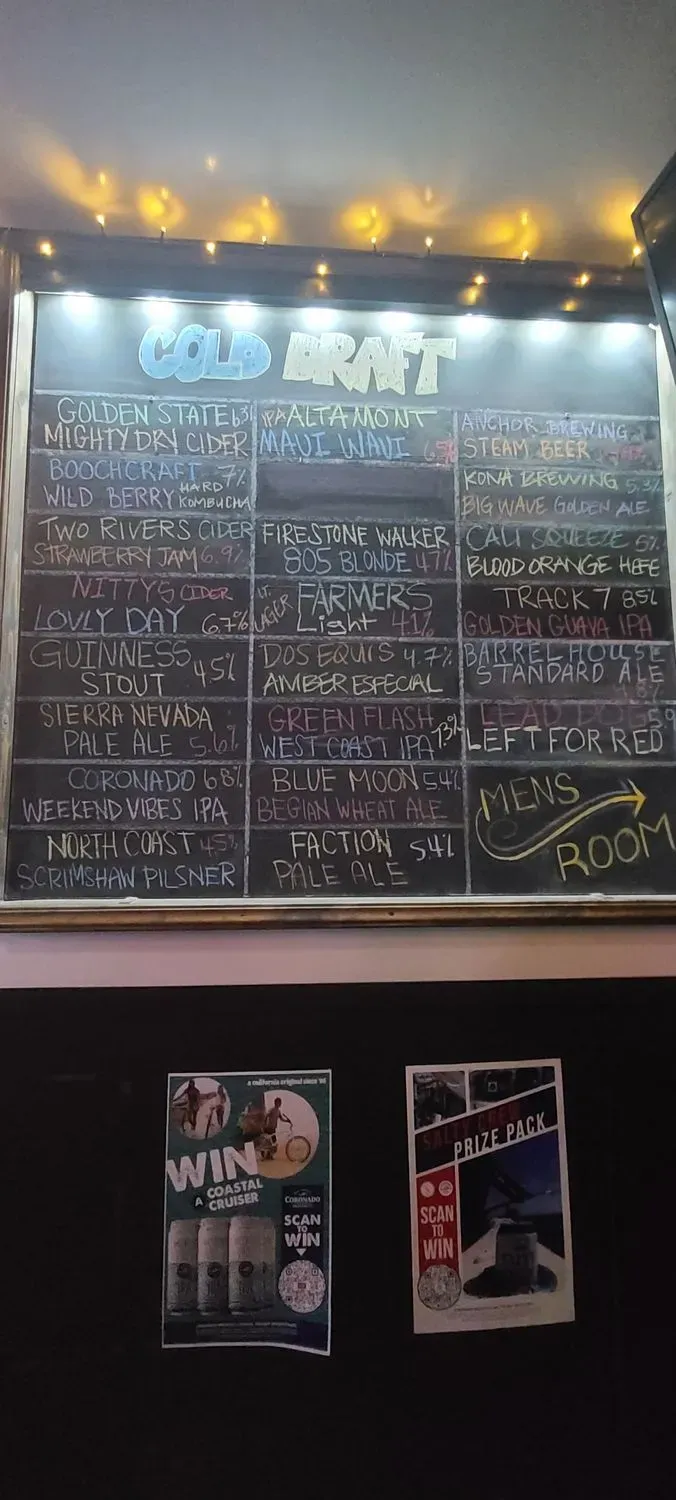 COLD DRAFT
GOLDEN STATE 6.3%
MIGHTY DRY CIDER
BOOCHCRAFT 7%
WILD BERRY HARD KOMBUCHA
TWO RIVERS CIDER
STRAWBERRY JAM 6.9%
NITTYS CIDER
LOVLY DAY 6.7%
GUINNESS 4.5%
STOUT
SIERRA NEVADA
PALE ALE 5.6%
CORONADO 6.8%
WEEKEND VIBES IPA
NORTH COAST 4.5%
SCRIMSHAW PILSNER
IPA ALTAMONT
MAUI WAUI 6.5%
FIRESTONE WALKER
805 BLONDE 4.7%
LT. LAGER FARMERS
Light 4.1%
DOS EQUIS 4.7%
AMBER ESPECIAL
GREEN FLASH
WEST COAST IPA 7.3%
BLUE MOON 5.4%
BEGIAN WHEAT ALE
FACTION 5.4%
PALE ALE
ANCHOR BREWING
STEAM BEER
KONA BREWING 5.3%
BIG WAVE GOLDEN ALE
CALI SQUEEZE 5%
BLOOD ORANGE HEFE
TRACK 7 8.5%
GOLDEN GUAVA IPA
BARREL HOUSE
STANDARD ALE
4.8%
LEAD DOG 5.9
LEFT FOR RED
MENS
ROOM
a california original since '96
WIN
A COASTAL
CRUISER
CORONADO
SCAN
TO
WIN
SALTY CREW
PRIZE PACK
SCAN
TO
WIN